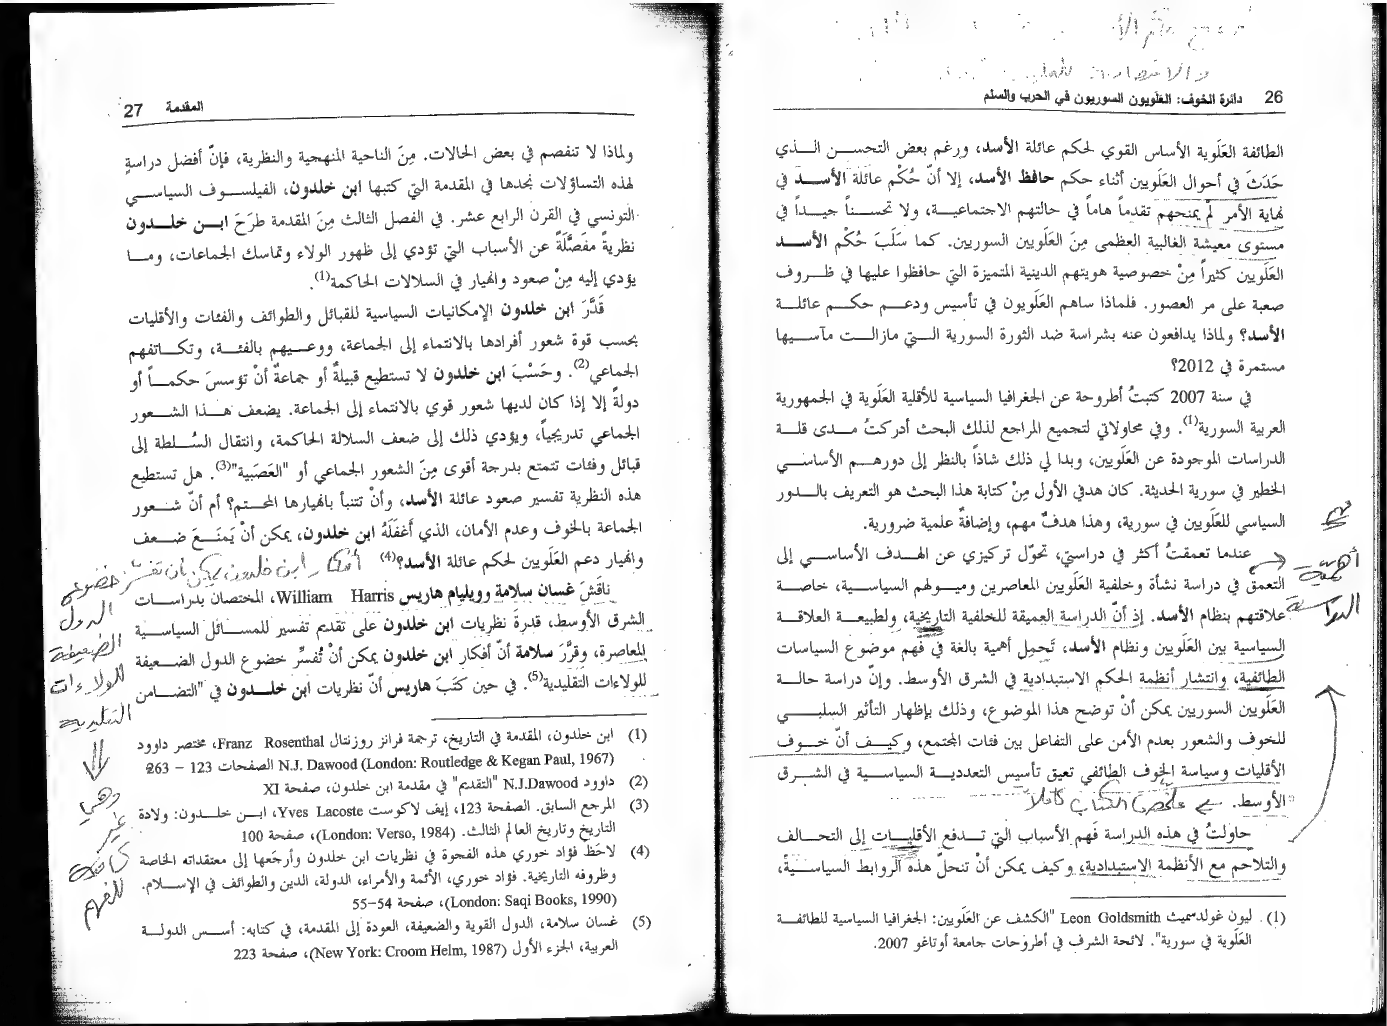 26 دائرة الخوف: العَلَويون السوريون في الحرب والسلم
الطائفة العَلَوية الأساس القوي لحكم عائلة الأسد، ورغم بعض التحسن الذي
حَدَثَ في أحوال العَلَويين أثناء حكم حافظ الأسد، إلا أنّ حُكْم عائلة الأسد في
نهاية الأمر لمْ يمنحهم تقدماً هاماً في حالتهم الاجتماعية، ولا تحسناً جيداً في
مستوى معيشة الغالبية العظمى مِنَ العَلَويين السوريين. كما سَلَبَ حُكْم الأسد
العَلَويين كثيراً مِنْ خصوصية هويتهم الدينية المتميزة التي حافظوا عليها في ظروف
صعبة على مر العصور. فلماذا ساهم العَلَويون في تأسيس ودعم حكم عائلة
الأسد؟ ولماذا يدافعون عنه بشراسة ضد الثورة السورية التي مازالت مآسيها
مستمرة في 2012؟
في سنة 2007 كتبتُ أطروحة عن الجغرافيا السياسية للأقلية العَلَوية في الجمهورية
العربية السورية(1). وفي محاولاتي لتجميع المراجع لذلك البحث أدركتُ مدى قلة
الدراسات الموجودة عن العَلَويين، وبدا لي ذلك شاذاً بالنظر إلى دورهم الأساسي
الخطير في سورية الحديثة. كان هدفي الأول مِنْ كتابة هذا البحث هو التعريف بالدور
السياسي للعَلَويين في سورية، وهذا هدفٌ مهم، وإضافةٌ علمية ضرورية.
عندما تعمقتُ أكثر في دراستي، تحوّل تركيزي عن الهدف الأساسي إلى
التعمق في دراسة نشأة وخلفية العَلَويين المعاصرين وميولهم السياسية، خاصة
علاقتهم بنظام الأسد. إذ أنّ الدراسة العميقة للخلفية التاريخية، ولطبيعة العلاقة
السياسية بين العَلَويين ونظام الأسد، تَحمِل أهمية بالغة في فَهم موضوع السياسات
الطائفية، وانتشار أنظمة الحكم الاستبدادية في الشرق الأوسط. وإنّ دراسة حالة
العَلَويين السوريين يمكن أنْ توضح هذا الموضوع، وذلك بإظهار التأثير السلبي
للخوف والشعور بعدم الأمن على التفاعل بين فئات المجتمع، وكيف أنّ خوف
الأقليات وسياسة الخوف الطائفي تعيق تأسيس التعددية السياسية في الشرق
الأوسط. ملخص الكتاب كاملاً
حاولتُ في هذه الدراسة فَهم الأسباب التي تدفع الأقليات إلى التحالف
والتلاحم مع الأنظمة الاستبدادية، وكيف يمكن أنْ تنحلّ هذه الروابط السياسية،
(1) ليون غولدسميث Leon Goldsmith "الكشف عن العَلَويين: الجغرافيا السياسية للطائفة
العَلَوية في سورية". لائحة الشرف في أطروحات جامعة أوتاغو 2007.
مهم
أهمية
الدراسة
المقدمة 27
ولماذا لا تنفصم في بعض الحالات. مِنَ الناحية المنهجية والنظرية، فإنّ أفضل دراسةٍ
لهذه التساؤلات نجدها في المقدمة التي كتبها ابن خلدون، الفيلسوف السياسي
التونسي في القرن الرابع عشر. في الفصل الثالث مِنَ المقدمة طرَحَ ابن خلدون
نظريةً مفصَّلَةً عن الأسباب التي تؤدي إلى ظهور الولاء وتماسك الجماعات، وما
يؤدي إليه مِنْ صعود وانهيار في السلالات الحاكمة(1).
قَدَّرَ ابن خلدون الإمكانيات السياسية للقبائل والطوائف والفئات والأقليات
بحسب قوة شعور أفرادها بالانتماء إلى الجماعة، ووعيهم بالفئة، وتكاتفهم
الجماعي(2). وحَسْبَ ابن خلدون لا تستطيع قبيلةٌ أو جماعةٌ أنْ تؤسسَ حكماً أو
دولةً إلا إذا كان لديها شعور قوي بالانتماء إلى الجماعة. يضعف هذا الشعور
الجماعي تدريجياً، ويؤدي ذلك إلى ضعف السلالة الحاكمة، وانتقال السُلطة إلى
قبائل وفئات تتمتع بدرجة أقوى مِنَ الشعور الجماعي أو "العَصَبية"(3). هل تستطيع
هذه النظرية تفسير صعود عائلة الأسد، وأنْ تتنبأ بانهيارها المحتم؟ أم أنّ شعور
الجماعة بالخوف وعدم الأمان، الذي أغفَلَهُ ابن خلدون، يمكن أنْ يَمنَعَ ضعف
وانهيار دعم العَلَويين لحكم عائلة الأسد؟(4) أفكار ابن خلدون يمكن أن تفسّر خضوع
الدول
الضعيفة
للولاءات
التقليدية
وهي
غير
كافية
للفهم
ناقَشَ غسان سلامة وويليام هاريس William Harris، المختصان بدراسات
الشرق الأوسط، قدرةَ نظريات ابن خلدون على تقديم تفسير للمسائل السياسية
المعاصرة، وقرَّرَ سلامة أنّ أفكار ابن خلدون يمكن أنْ تُفسِّر خضوع الدول الضعيفة
للولاءات التقليدية(5). في حين كتَبَ هاريس أنّ نظريات ابن خلدون في "التضامن
(1) ابن خلدون، المقدمة في التاريخ، ترجمة فرانز روزنتال Franz Rosenthal، مختصر داوود
N.J. Dawood (London: Routledge & Kegan Paul, 1967) الصفحات 123 – 263
(2) داوود N.J.Dawood "التقديم" في مقدمة ابن خلدون، صفحة XI
(3) المرجع السابق. الصفحة 123، إيف لاكوست Yves Lacoste، ابن خلدون: ولادة
التاريخ وتاريخ العالم الثالث. (London: Verso, 1984)، صفحة 100
(4) لاحَظَ فؤاد خوري هذه الفجوة في نظريات ابن خلدون وأرجَعها إلى معتقداته الخاصة
وظروفه التاريخية. فؤاد خوري، الأئمة والأمراء، الدولة، الدين والطوائف في الإسلام.
(London: Saqi Books, 1990)، صفحة 54–55
(5) غسان سلامة، الدول القوية والضعيفة، العودة إلى المقدمة، في كتابه: أسس الدولة
العربية، الجزء الأول (New York: Croom Helm, 1987)، صفحة 223